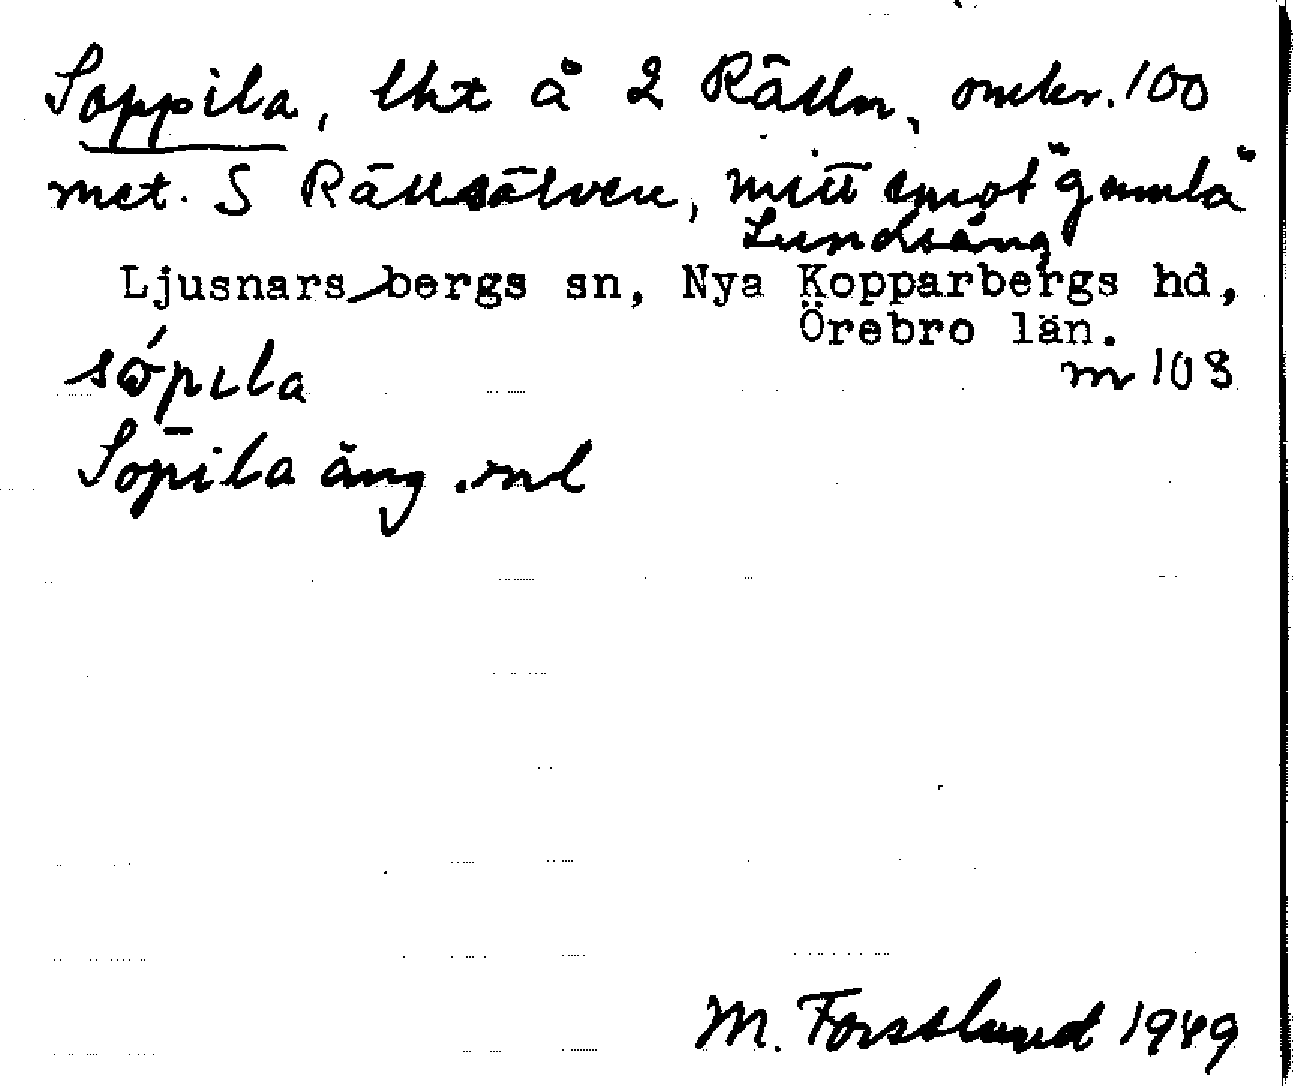 Soppila, lht å 2 Rälln, omkr. 100
met. S Rällsälven, mitt emot "gamla"
Lundsäng
Ljusnarsbergs sn, Nya Kopparbergs hd,
Örebro län.
m 103
sópıla
Sop̄ila äng. nl
M. Forsslund 1949